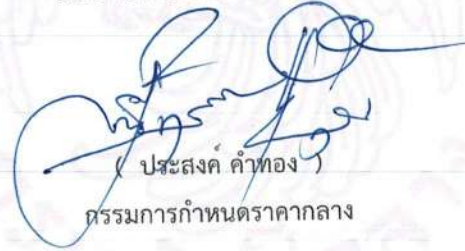 ( ประสงค์ คำทอง )
กรรมการกำหนดราคากลาง